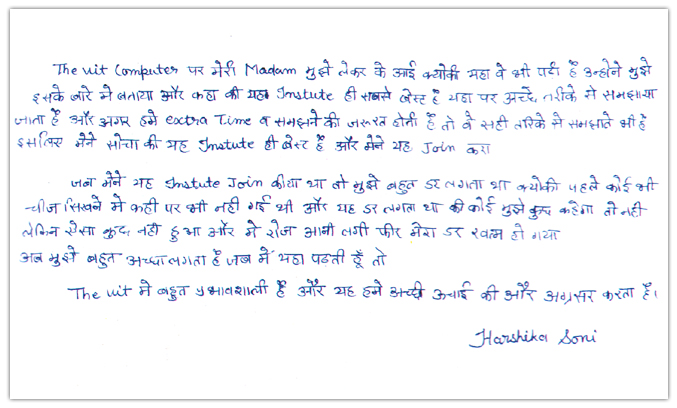 The uit Computer पर मेरी Madam मुझे लेकर के आई क्योकी यहा वे भी पढी है उन्होने मुझे
इसके बारे मे बताया और कहा की यहा Instute ही सबसे बेस्ट है यहा पर अच्छे तरीके से समझाया
जाता है और अगर हमे extra Time व समझने की जरूरत होती है तो वे सही तरिके से समझाते भी है
इसलिए मेने सोचा की यह Instute ही बेस्ट है और मेने यह Join करा
जब मेने यह Instute Join कीया था तो मुझे बहुत डर लगता था क्योकी पहले कोई भी
चीज सिखने मे कही पर भी नही गई थी और यह डर लगता था की कोई मुझे कुछ कहेगा तो नही
लेकिन ऐसा कुछ नही हुआ और मे रोज आनी लगी फीर मेरा डर खत्म हो गया
अब मुझे बहुत अच्छा लगता है जब में यहा पढती हूँ तो
The uit मे बहुत प्रभावशाली है और यह हमे अच्छी ऊचाई की और अग्रसर करता है।
Harshika Soni